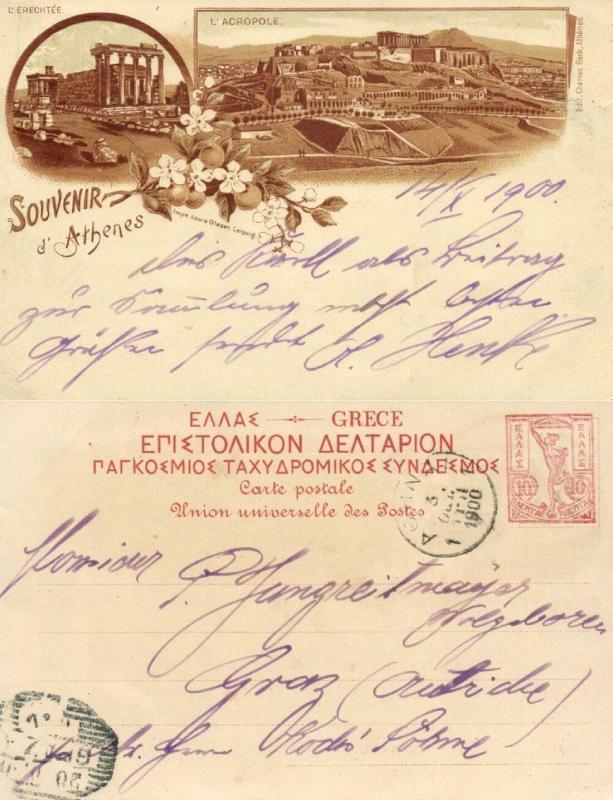 L'ERECHTÉE.
L'ACROPOLE.
Edit. Charles Beck, Athènes.
SOUVENIR
d'Athenes
Impr. Louis Glaser, Leipzig.
14/X 1900.
als Beitrag
zur Sammlung nebst besten
Grüßen sendet
ΕΛΛΑΣ GRECE
ΕΠΙΣΤΟΛΙΚΟΝ ΔΕΛΤΑΡΙΟΝ
ΠΑΓΚΟΣΜΙΟΣ ΤΑΧΥΔΡΟΜΙΚΟΣ ΣΥΝΔΕΣΜΟΣ
Carte postale
Union universelle des Postes
ΕΛΛΑΣ ΕΛΛΑΣ
10 10
ΛΕΠΤΑ ΛΕΠΤΑ
1900
Monsieur
P. Jungreitmayer
Wolgeboren
Graz (Autriche)
Söhne